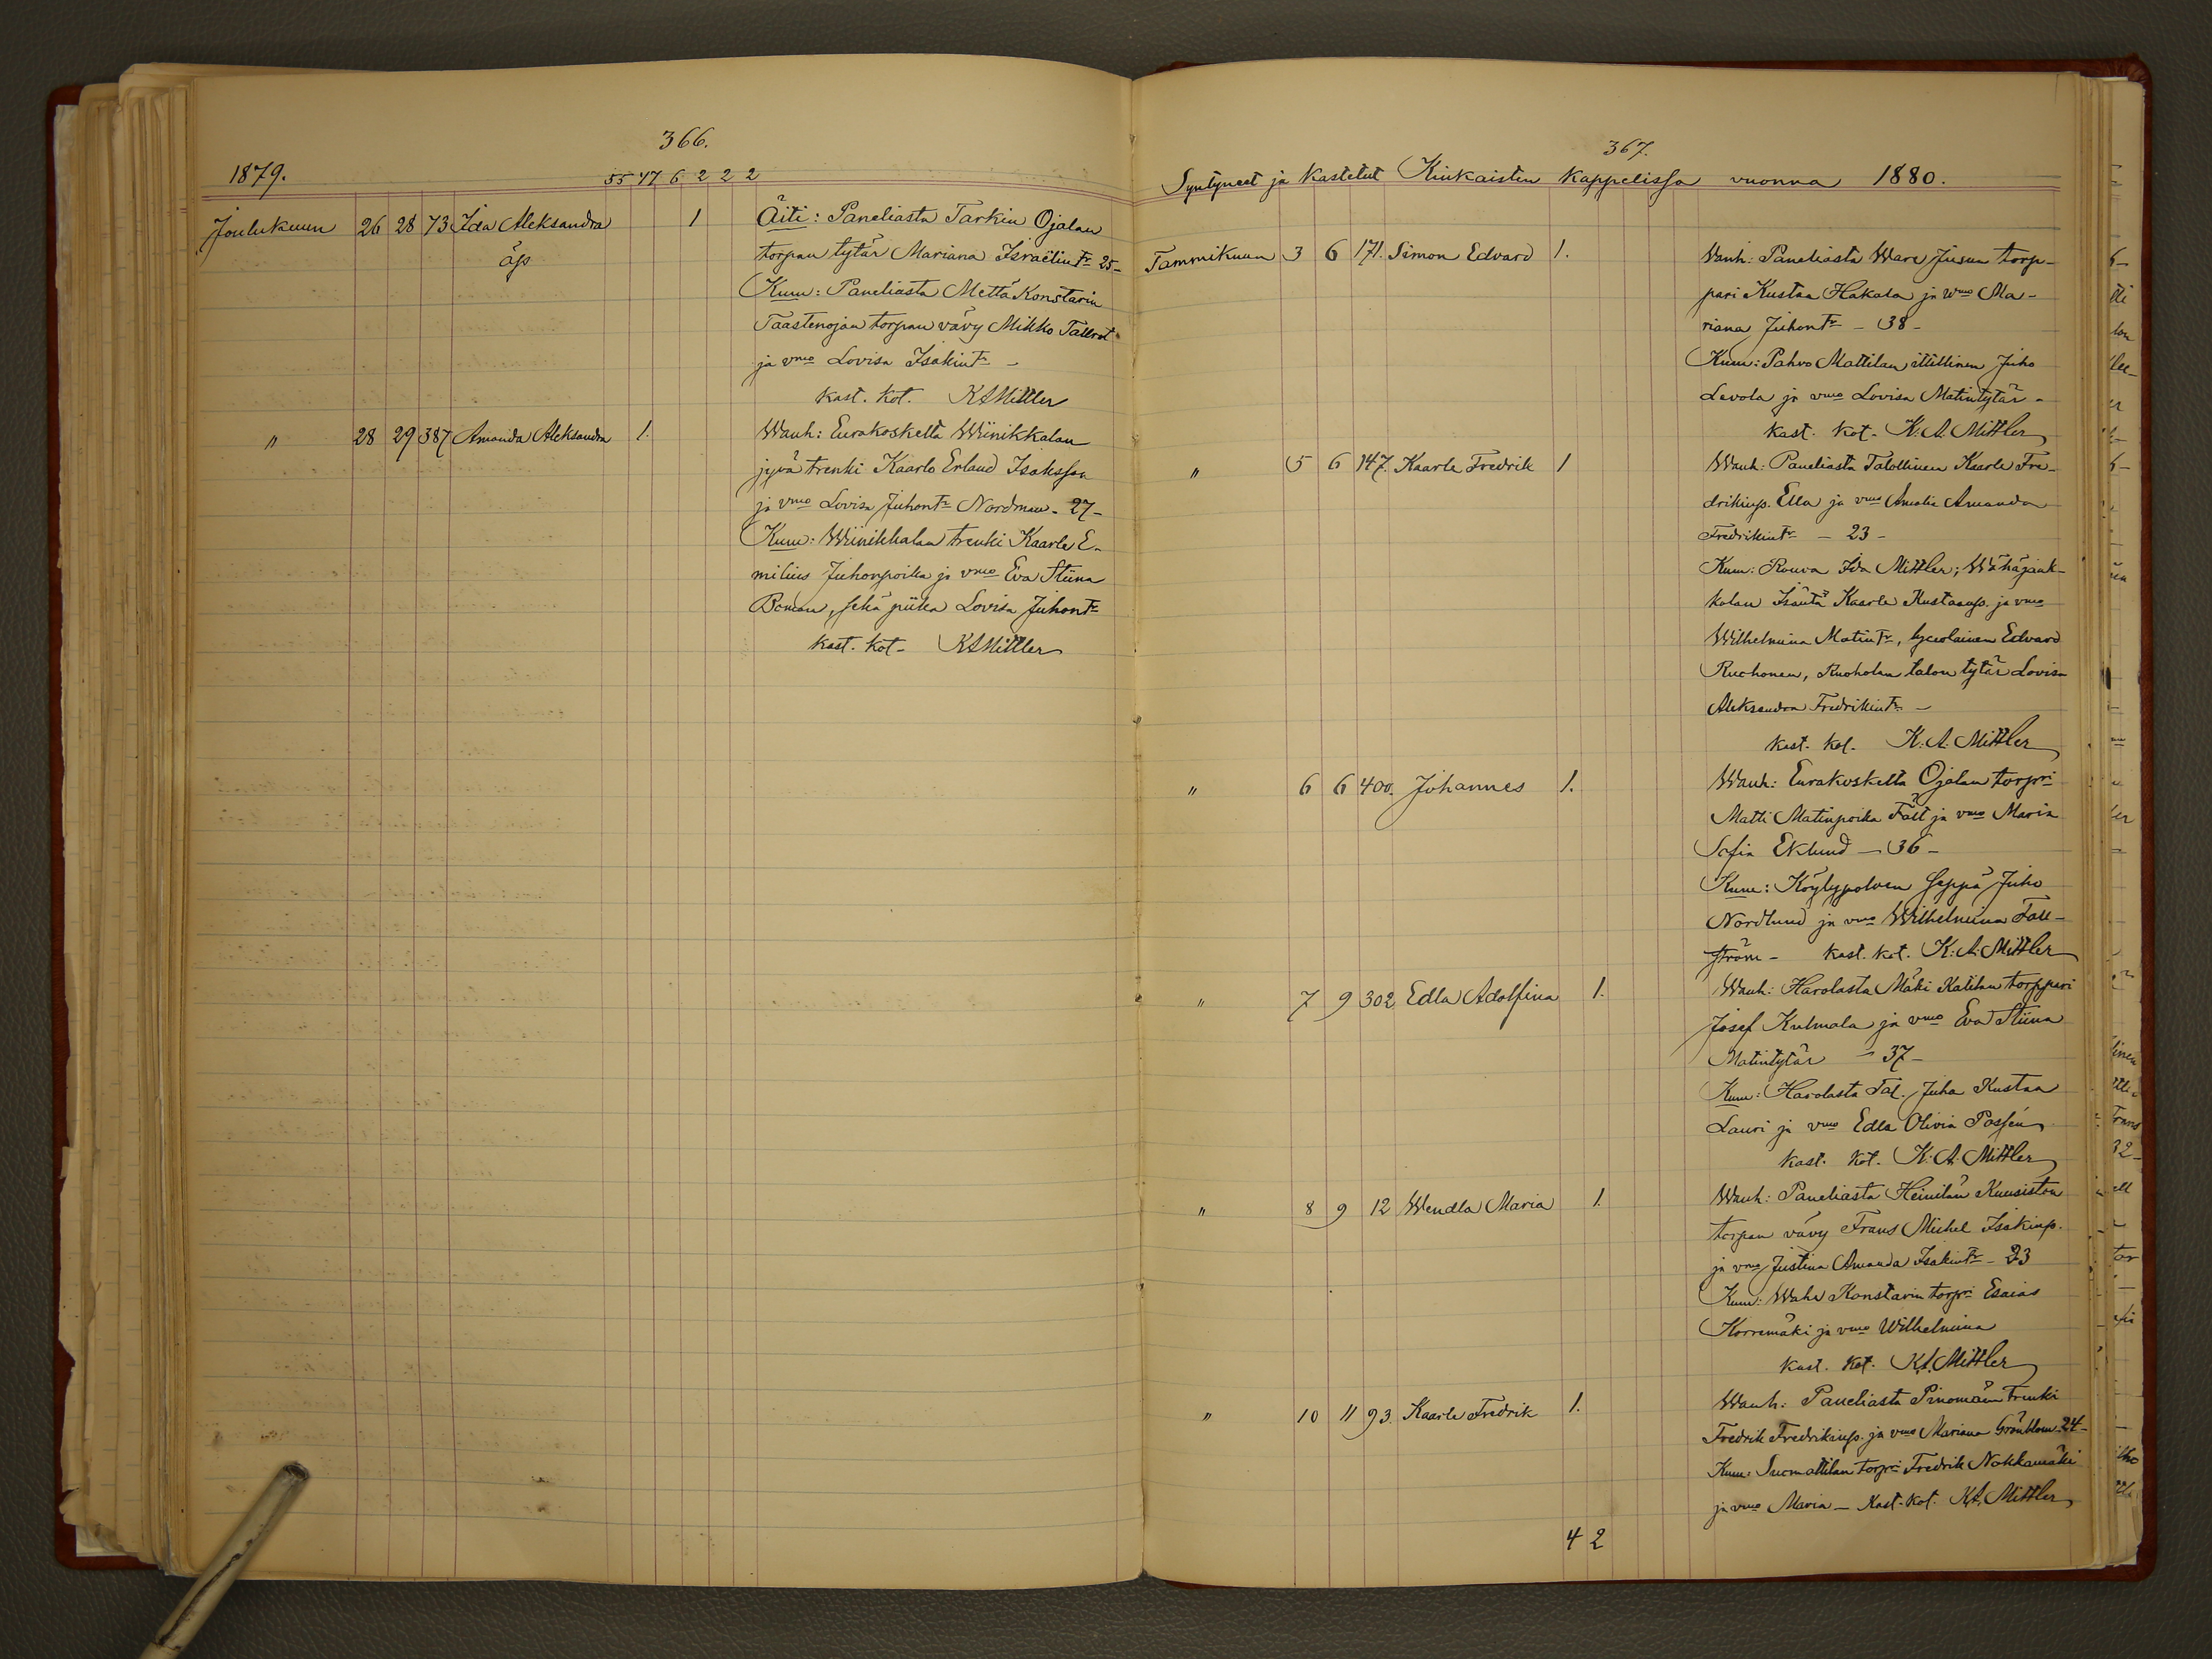 366.
1879. 55 47 6 2 2 2
Joulukuun 26 28 73 Ida Aleksandra 1 Äiti: Paneliasta Tarkin Ojalan
äp torpan tytär Mariana Israëlintr 25-
Kum: Paneliasta Mettä Konstarin
Taastenojan torpan vävy Mikko Tallrot
ja vmo Lovisa Isakintr -
kast. kot. KAMittler
" 28 29 387 Amanda Aleksandra 1. Wanh: Eurakoskelta Wiinikkalan
jyvä trenki Kaarlo Erland Isaksson
ja vmo Lovisa Juhontr Nordman - 27-
Kum: Wiinikkalan trenki Kaarle E-
milius Juhonpoika ja vmo Eva Stiina
Boman, sekä piika Lovisa Juhontr
kast. kot- KAMittler
367.
Syntyneet ja kastetut Kiukaisten kappelissa vuonna 1880.
Tammikuun 3 6 171. Simon Edvard 1. Vanh: Paneliasta Ware Juusen torp-
pari Kustaa Hakala ja wmo Ma-
riana Juhontr - 38-
Kum: Pahvo Mattilan itillinen Juho
Levola ja vmo Lovisa Matintytär -
kast. kot- K. A. Mittler
" 5 6 147. Kaarle Fredrik 1 Wanh: Paneliasta Talollinen Kaarle Fre-
drikinp. Ella ja vmo Amalia Amanda
Fredrikintr - 23 -
Kum: Rouva Ida Mittler; Wähäjaak-
kolan Isäntä Kaarle Kustaanp. ja vmo
Wilhelmina Matintr, lyceolainen Edvard
Ruohonen, Ruoholan talon tytär Lovisa
Aleksandra Fredrikintr -
kast. kot. K. A. Mittler
" 6 6 400. Johannes 1. Wanh: Eurakoskelta Ojalan torpri
Matti Matinpoika Fält ja vmo Maria
Sofia Eklund - 36 -
Kum: Köylypolven seppä Juho
Nordlund ja vmo Wilhelmina Fall-
ström - kast. kot. K. A. Mittler
" 7 9 302 Edla Adolfina 1. Wanh: Harolasta Mäki Katilan torppari
Josef Kulmala ja vmo Eva Stiina
Matintytär - 37-
Kum: Harolasta Tal. Juha Kustaa
Lauri ja vmo Edla Olivia Passén
kast. kot. K. A. Mittler
" 8 9 12 Wendla Maria 1. Wanh: Paneliasta Heinilän Kuusiston
torpan vävy Frans Michel Isakinp.
ja vmo Justina Amanda Isakintr - 23
Kum: Waha Konstarin torpri Esaias
Korremäki ja vmo Wilhelmina
kast. kot. K. A. Mittler
" 10 11 93. Kaarle Fredrik 1. Wanh: Paneliasta Pinomäen trenki
Fredrik Fredrikinp. ja vmo Mariana Grönblom - 24-
Kum: Suomattilan torpri Fredrik Nokkamäki
ja vmo Maria - Kast. kot. K. A. Mittler
4 2